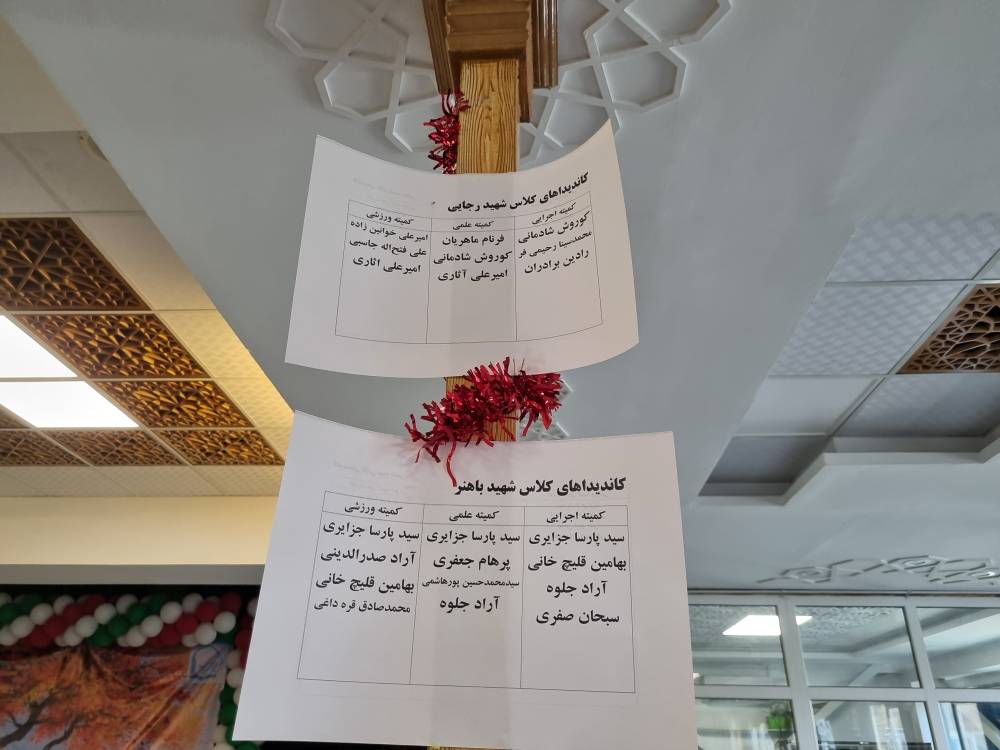 کاندیداهای کلاس شهید رجایی
کمیته اجرایی کمیته علمی کمیته ورزشی
کوروش شادمانی فرنام ماهریان امیرعلی خوانین زاده
محمدسینا رحیمی فر کوروش شادمانی علی فتح‌اله جاسبی
رادین برادران امیرعلی آثاری امیرعلی اثاری
کاندیداهای کلاس شهید باهنر
کمیته اجرایی کمیته علمی کمیته ورزشی
سید پارسا جزایری سید پارسا جزایری سید پارسا جزایری
بهامین قلیچ خانی پرهام جعفری آراد صدرالدینی
آراد جلوه سیدمحمدحسین پورهاشمی بهامین قلیچ خانی
سبحان صفری آراد جلوه محمدصادق قره داغی